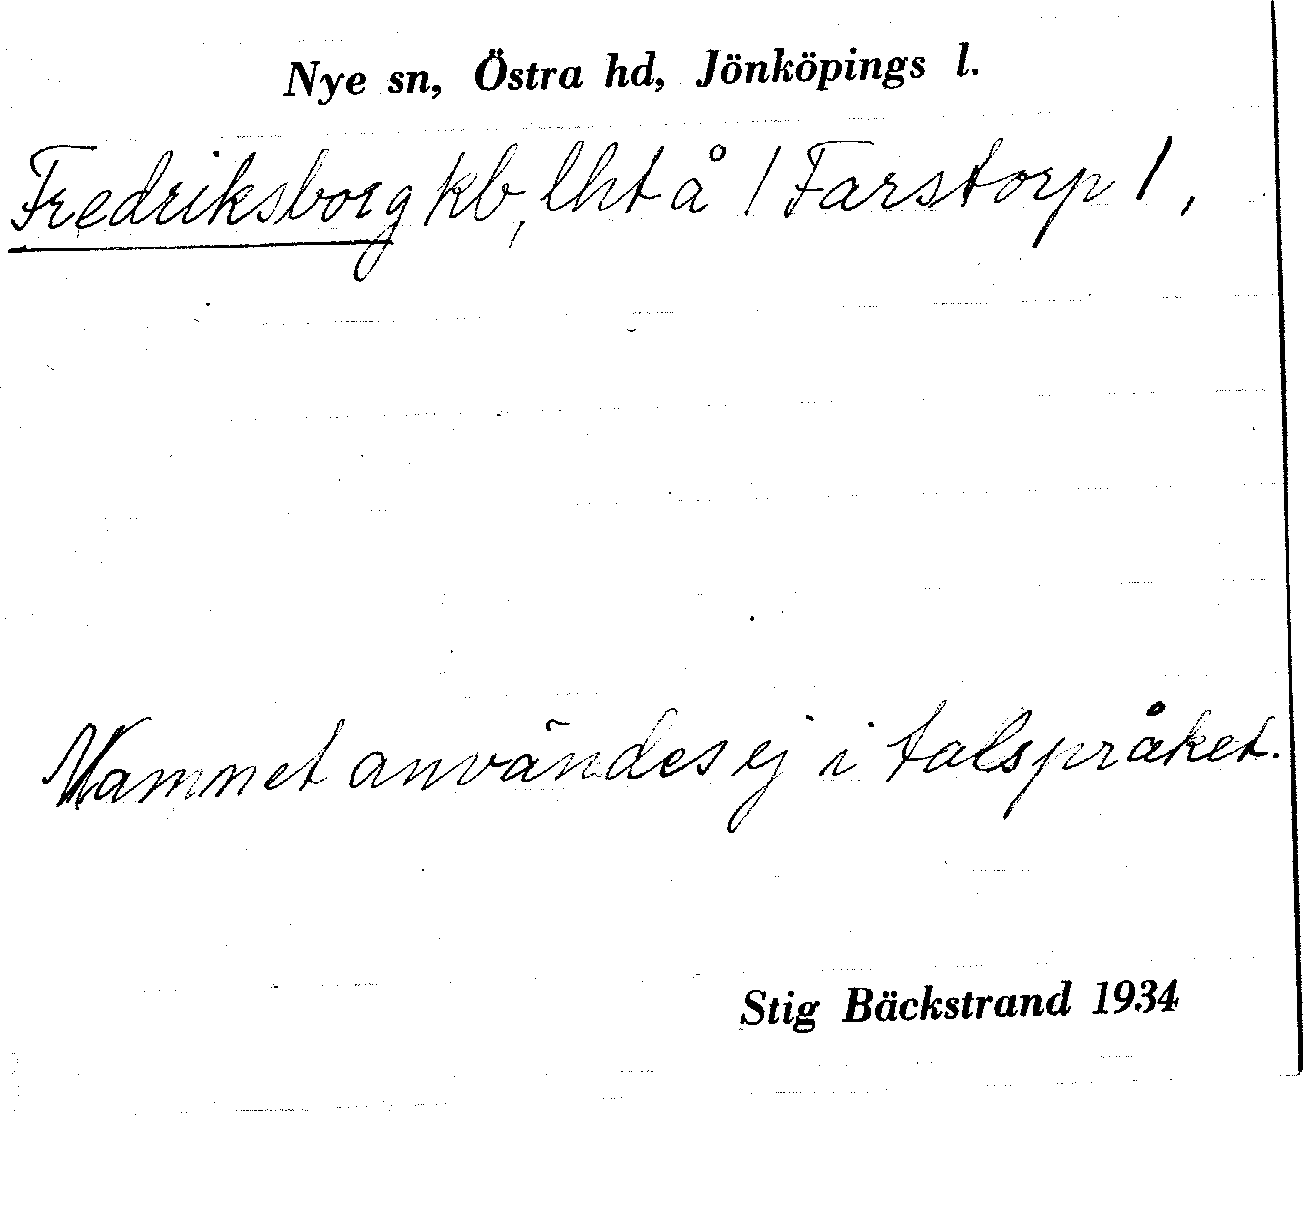 Nye sn, Östra hd, Jönköpings l.
Fredriksborg kb, lht å / Farstorp /,
Namnet användes ej i talspråket.
Stig Bäckstrand 1934